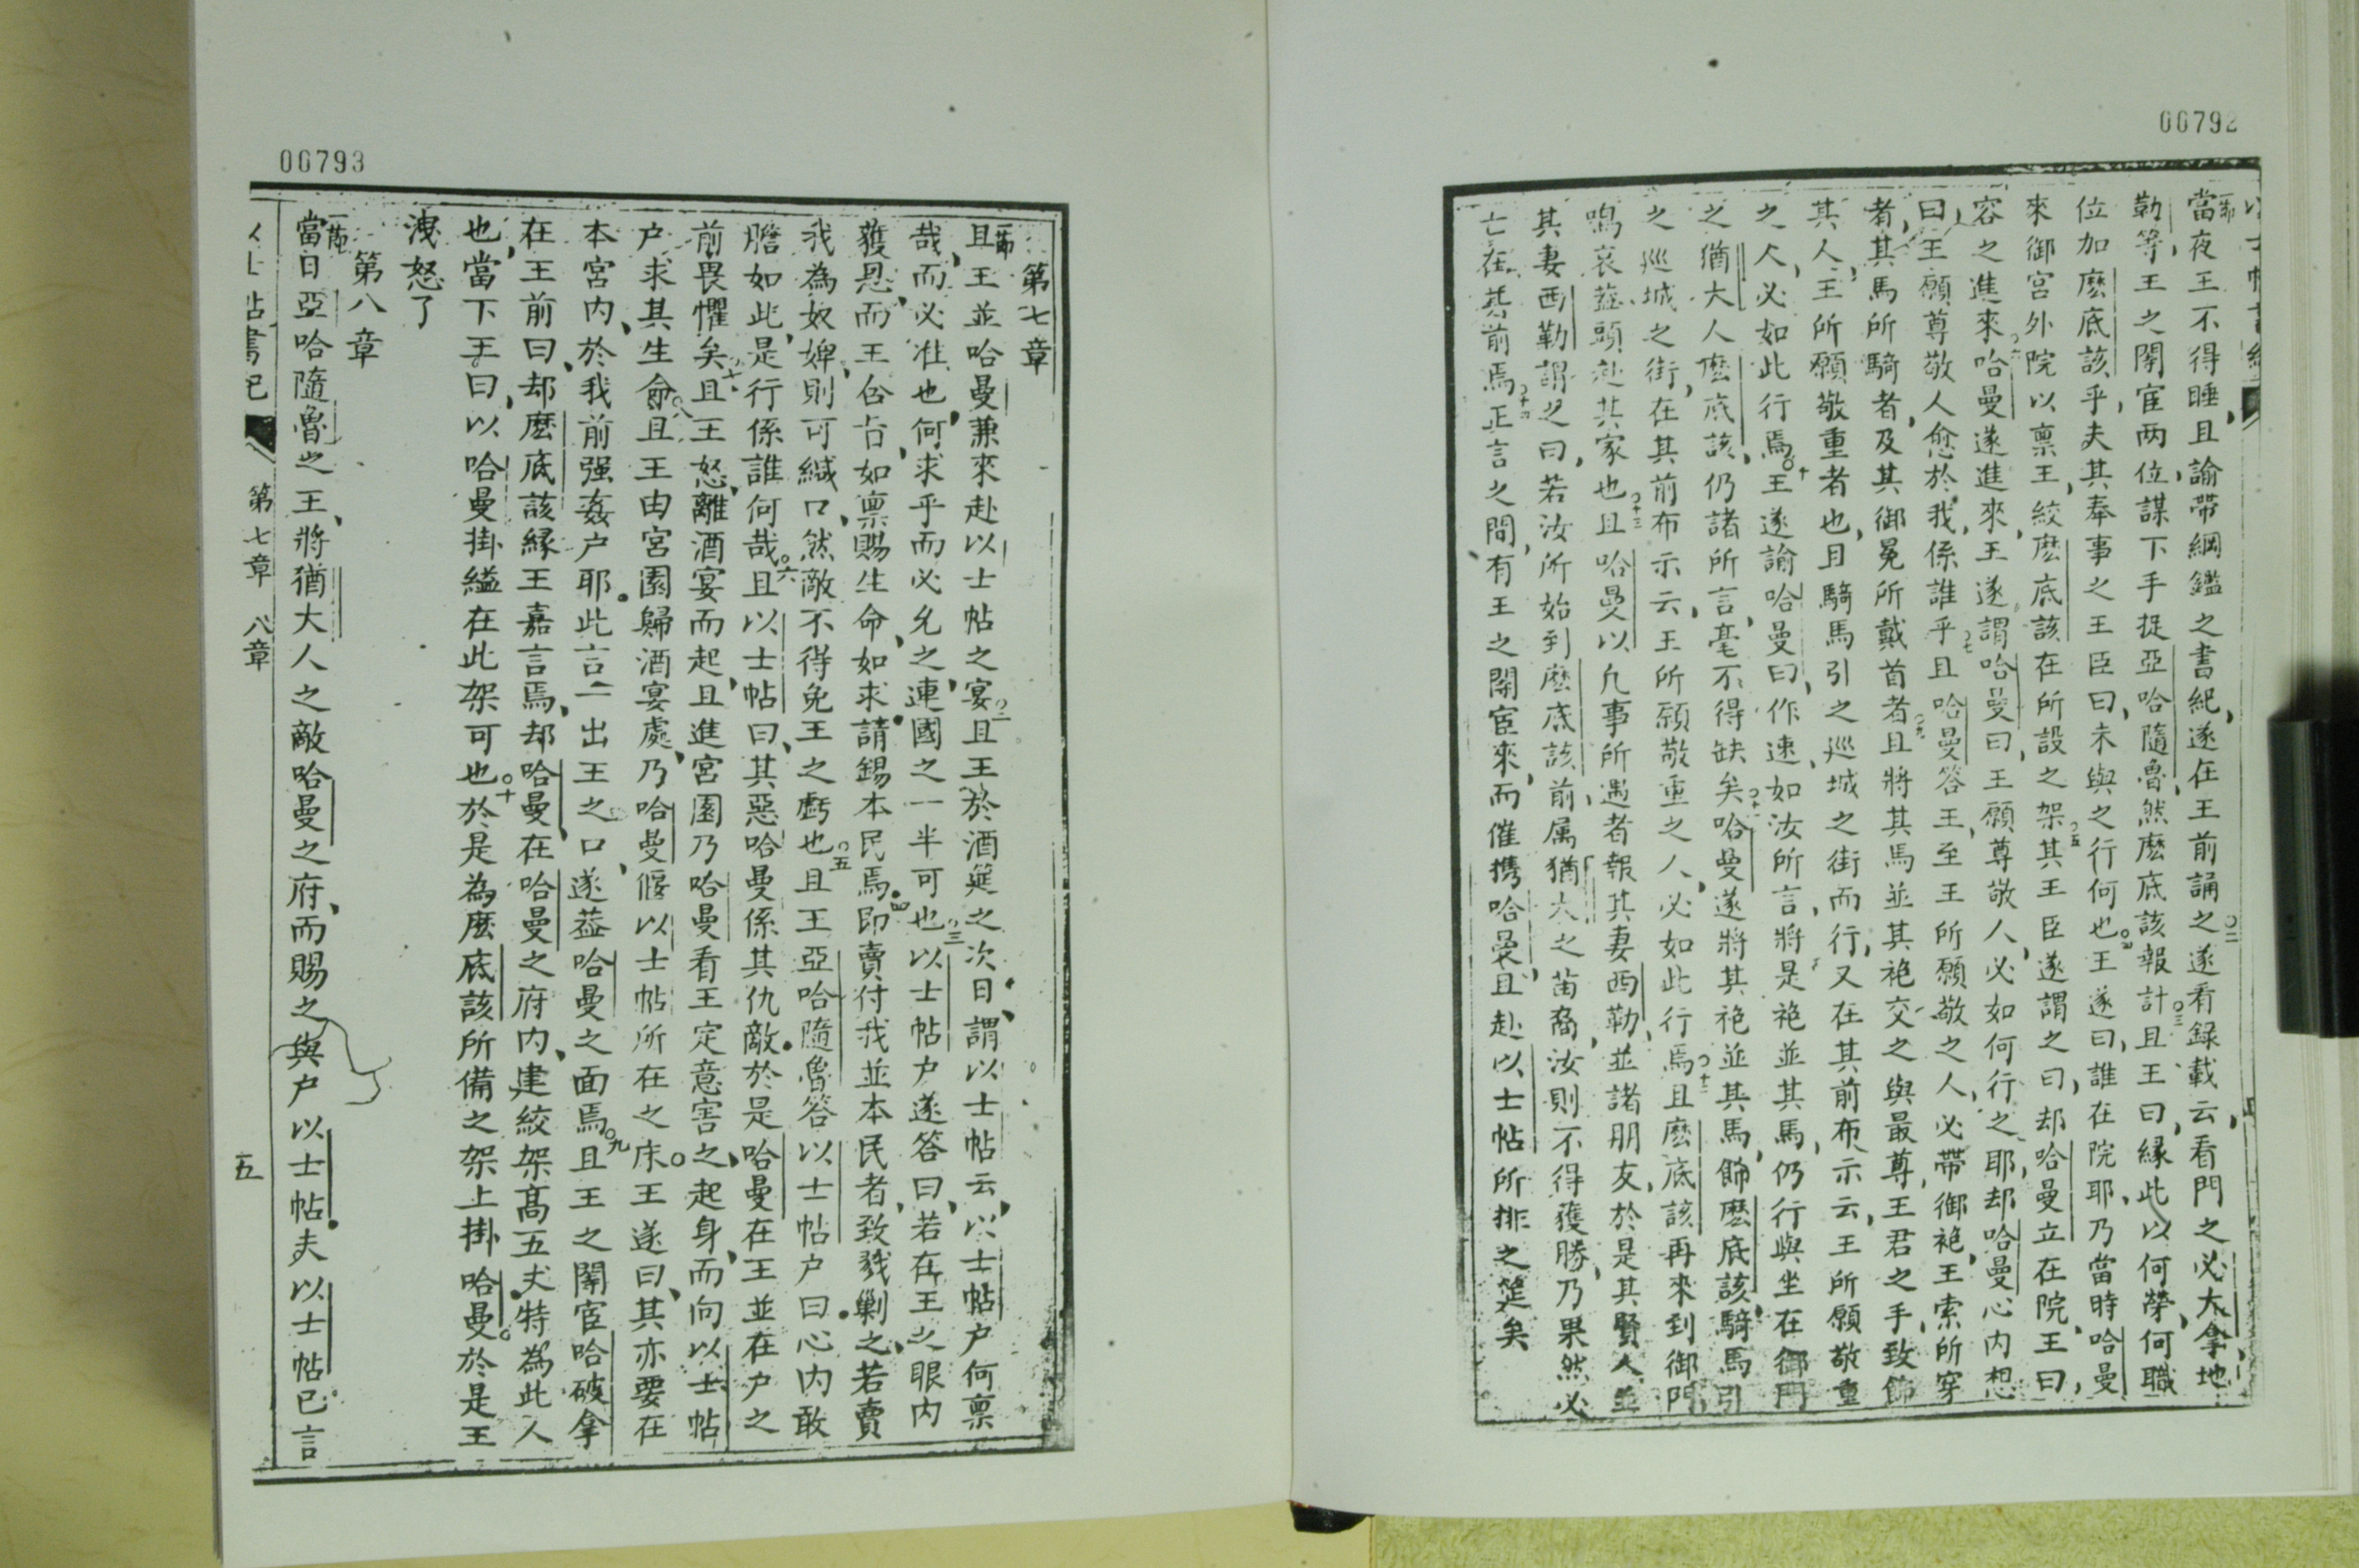 00792
當夜王不得睡、且諭帶綱鑑之書紀、遂在王前誦之○二遂看録載云、看門之必大拿、地
勒等、王之閹宦两位、謀下手捉亞哈隨魯、然麽底該報計○三且王曰、緣此以何榮、何職
位加麽底該乎、夫其奉事之王臣曰、未與之行何也○四王遂曰、誰在院耶、乃當時哈曼
來御宮外院以禀王、絞麽底該在所設之架○五其王臣遂謂之曰、却哈曼立在院、王曰、
容之進來○六哈曼遂進來、王遂謂哈曼曰、王願尊敬人、必如何行之耶、却哈曼心內想
曰、王願尊敬人愈於我、係誰乎○七且哈曼答王、至王所願敬之人、必帶御袍、王索所穿
者、其馬所騎者、及其御冕所戴首者○九且將其馬並其袍交之與最尊王君之手、致飾
其人、王所願敬重者也、且騎馬引之巡城之街而行、又在其前布示云、王所願敬重
之人、必如此行焉○十王遂諭哈曼曰、作速、如汝所言、將是袍並其馬、仍行與坐在御門
之猶大人麽底該、仍諸所言、毫不得缺矣○十一哈曼遂將其袍並其馬、飾麽底該、騎馬引
之巡城之街、在其前布示云、王所願敬重之人、必如此行焉○十二且麽底該再來到御門、
鳴哀蓋頭赴其家也○十三且哈曼以凢事所遇者報其妻西勒、並諸朋友、於是其賢人並
其妻西勒謂之曰、若汝所始到麽底該前、属猶大之苗裔、汝則不得獲勝、乃果然必
亡在其前焉○十四正言之間、有王之閹宦來、而催携哈曼且赴以士帖所排之筵矣
00793
第七章
一節且王並哈曼兼來赴以士帖之宴○二且王於酒筵之次日、謂以士帖云、以士帖户何禀
哉、而必准也、何求乎而必允之、連國之一半可也○三以士帖户遂答曰、若在王之眼内
獲恩、而王合旨、如禀賜生命、如求請錫本民焉○四即賣付我並本民者、致戮剿之、若賣
我為奴婢、則可緘口、然敵不得免王之虧也○五且王亞哈隨魯答以士帖户曰、心内敢
膽如此、是行係誰何哉○六且以士帖曰、其惡哈曼係其仇敵、於是哈曼在王並在户之
前畏懼矣○七且王怒、離酒宴而起、且進宮園乃哈曼看王定意害之、起身、而向以士帖
户求其生命○八且王由宮園歸酒宴處、乃哈曼偃以士帖所在之床○王遂曰、其亦要在
本宮内、於我前强姦户耶、此言一出王之口、遂葢哈曼之面焉○九且王之閹宦哈破拿
在王前曰、却麽底該緣王嘉言焉、却哈曼在哈曼之府内、建絞架高五丈特為此人
也、當下王曰、以哈曼掛縊在此架可也○十於是為麽底該所備之架上掛哈曼○於是王
洩怒了
第八章
一節當日亞哈隨魯之王、將猶大人之敵哈曼之府、而賜之與户以士帖、夫以士帖已言
以士帖書紀 第七章 八章 五